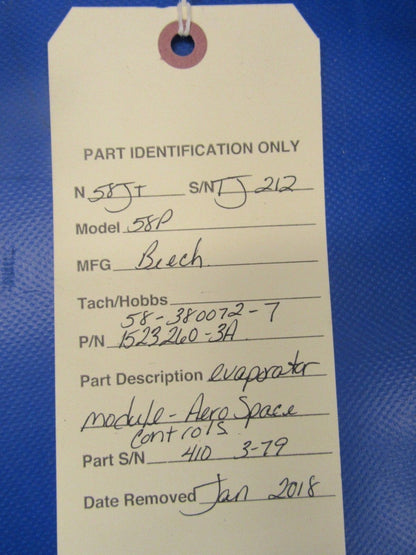 PART IDENTIFICATION ONLY
N 58JT S/N TJ 212
Model 58P
MFG Beech
Tach/Hobbs
58-380072-7
P/N 1523260-3A
Part Description evaporator
module - AeroSpace
controls
Part S/N 410 3-79
Date Removed Jan 2018